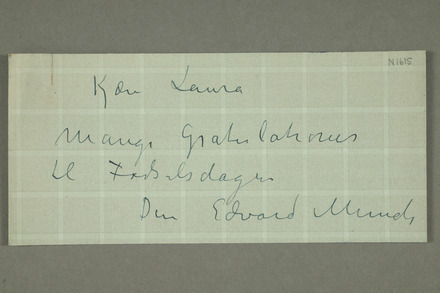 N 1615
Kære Laura
Mange Gratulationer
til Fødselsdagen
Din Edvard Munch